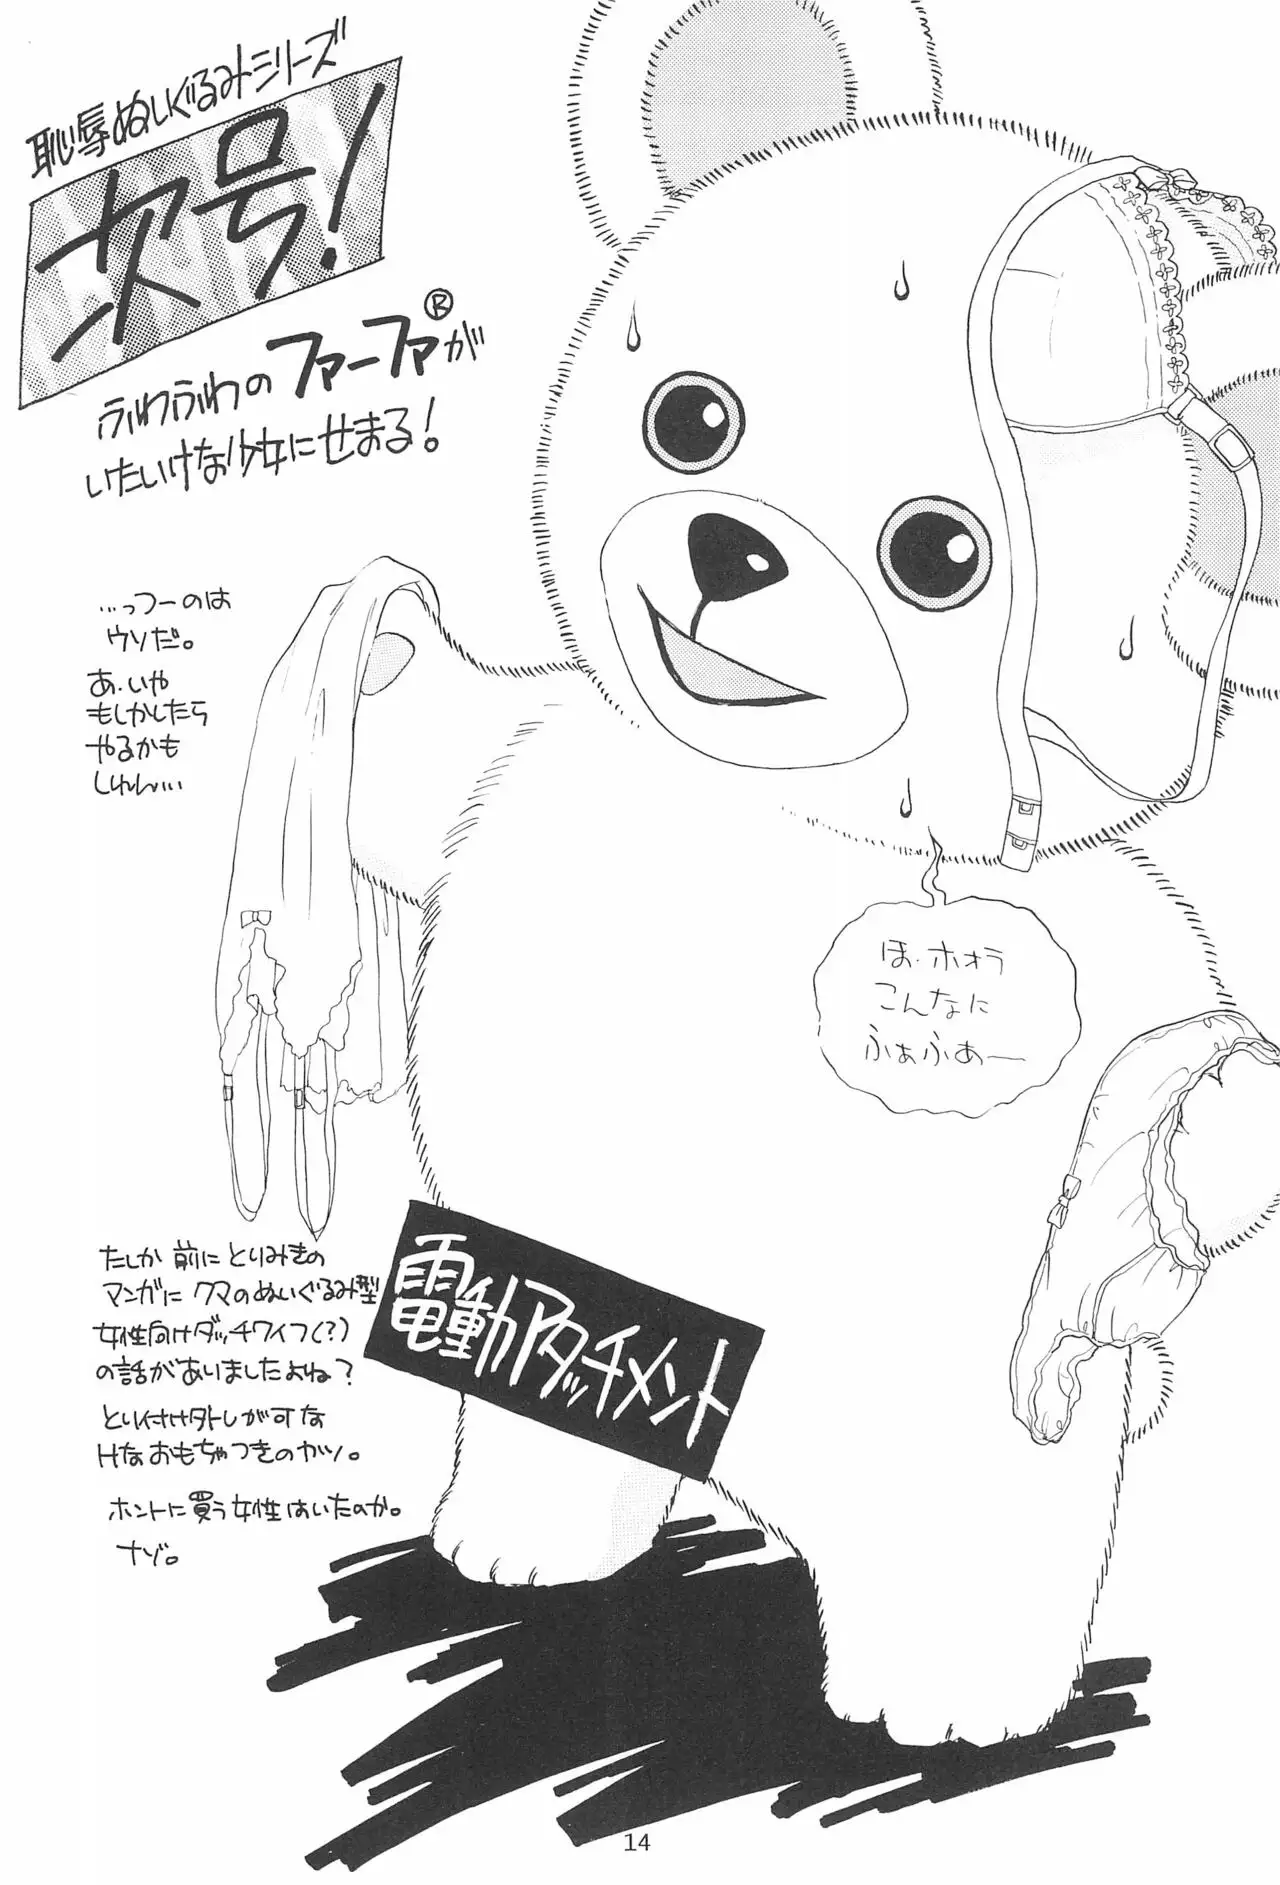 恥辱ぬいぐるみシリーズ
次号!
ふわふわのファーファ®が
いたいけな少女にせまる!
…っつーのは
ウソだ。
あ、いや
もしかしたら
やるかも
しれん…
ほ、ホォラ
こんなに
ふぁふぁー
電動アタッチメント
たしか前にとりみきの
マンガにクマのぬいぐるみ型
女性向けダッチワイフ(?)
の話がありましたよね?
とり付け外しが可な
Hなおもちゃつきのヤツ。
ホントに買う女性はいたのか。
ナゾ。
14